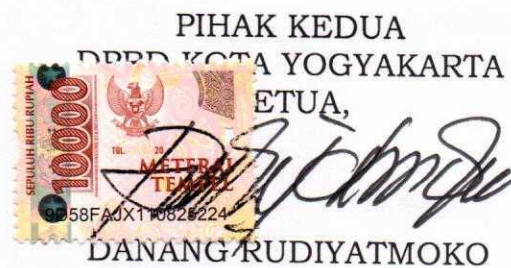 PIHAK KEDUA
DPRD KOTA YOGYAKARTA
KETUA,
SEPULUH RIBU RUPIAH
10000
TGL. 20
METERAI
TEMPEL
9D58FAJX110825224
DANANG RUDIYATMOKO